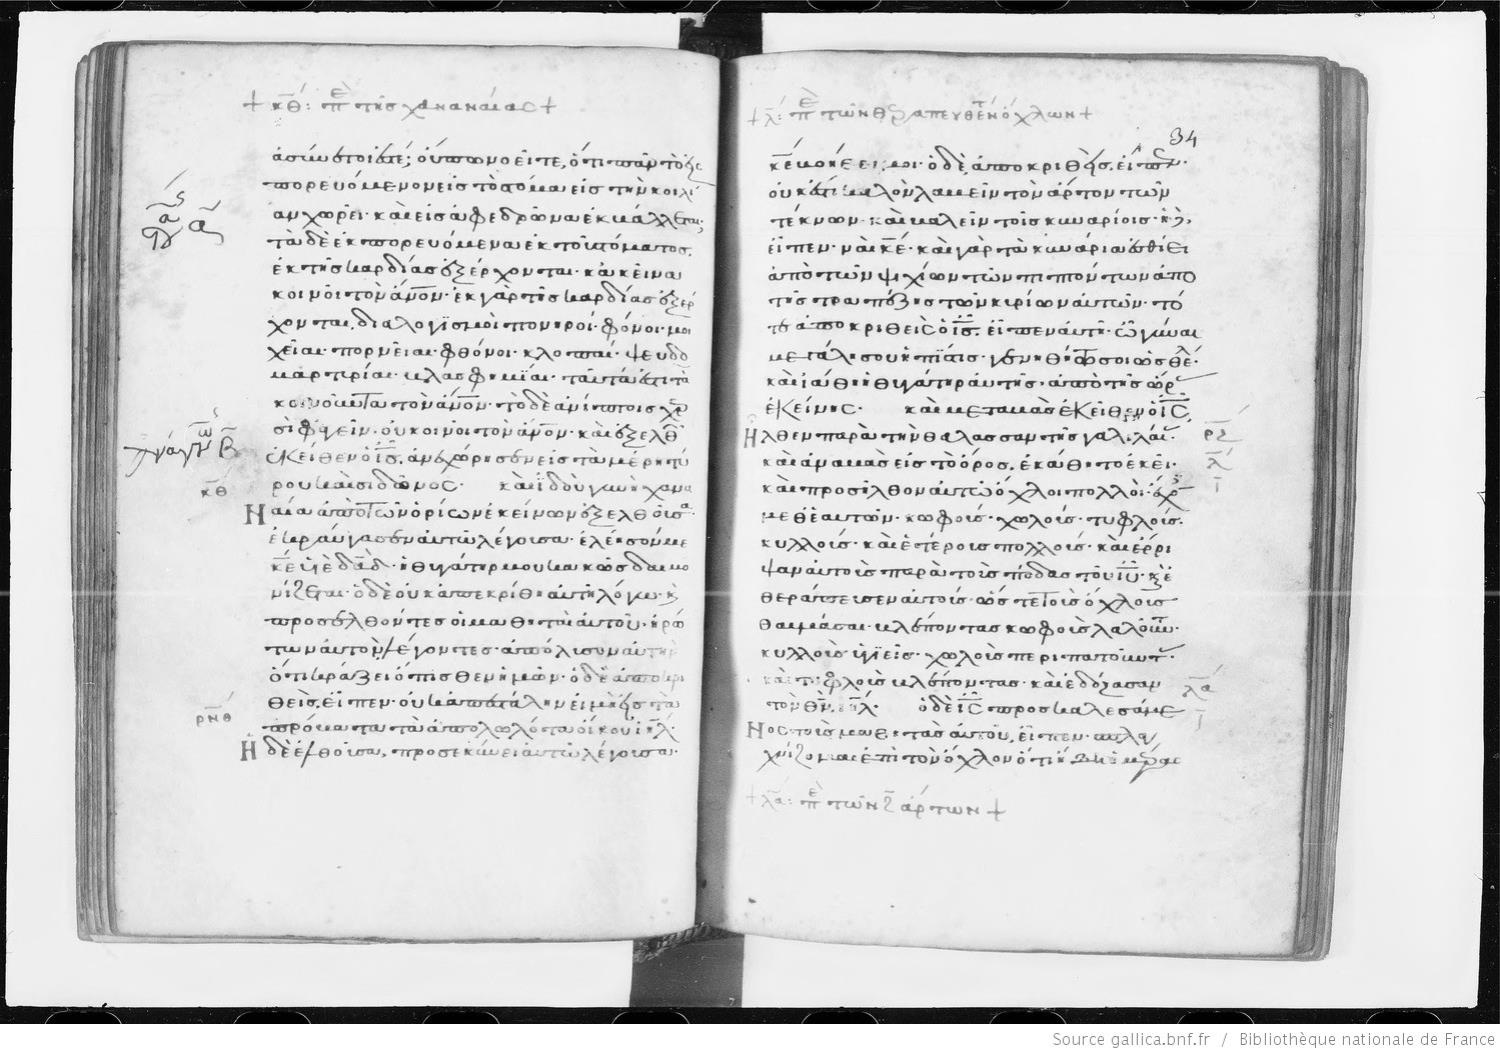 + κθ: περὶ τῆς χαναναίας +
ἀσύνετοί ἐστέ; οὔπω νοεῖτε, ὅτι πᾶν τὸ εἰσ
πορευόμενον εἰς τὸ στόμα εἰς τὴν κοιλί
αν χωρεῖ· καὶ εἰς ἀφεδρῶνα ἐκβάλλεται;
τὰ δὲ ἐκπορευόμενα ἐκ τοῦ στόματος,
ἐκ τῆς καρδίας ἐξέρχονται· κἀκεῖνα
κοινοῖ τὸν ἄνον· ἐκ γὰρ τῆς καρδίας ἐξέρ
χονται, διαλογισμοὶ πονηροί· φόνοι· μοι
χεῖαι· πορνεῖαι· φθόνοι· κλοπαί· ψευδο
μαρτυρίαι· βλασφημίαι· ταῦτά ἐστι τὰ
κοινοῦντα τὸν ἄνον· τὸ δὲ ἀνίπτοις χερ
σὶ φαγεῖν· οὐ κοινοῖ τὸν ἄνον· καὶ ἐξελθὼν
ἐκεῖθεν ὁ ις, ἀνεχώρησεν εἰς τὰ μέρη τύ
κθ
ρου καὶ σιδῶνος· καὶ ἰδοὺ γυνὴ χανα
Ναία ἀπὸ τῶν ὁρίων ἐκείνων ἐξελθοῦσα·
ἐκραύγασεν αὐτῶ λέγουσα· ἐλέησόν με
κε υἱὲ δαδ· ἡ θυγάτηρ μου κακῶς δαιμο
νίζεται· ὁ δὲ οὐκ ἀπεκρίθη αὐτῆ λόγον· κ
προσελθόντες οἱ μαθηταὶ αὐτοῦ· ἠρώ
των αὐτὸν λέγοντες· ἀπόλυσον αὐτὴν
ὅτι κράζει ὄπισθεν ἡμῶν· ὁ δὲ ἀποκρι
θεὶς, εἶπεν· οὐκ ἀπεστάλην εἰ μὴ εἰς τὰ
ρνθ
πρόβατα τὰ ἀπολωλότα οἴκου ιηλ·
Ἡ δὲ ἐλθοῦσα, προσεκύνει αὐτῶ λέγουσα·
+ λ: περὶ τῶν θεραπευθέντων ὄχλων +
34
κε βοήθει μοι· ὁ δὲ ἀποκριθεὶς, εἶπεν·
οὐκ ἔστι καλὸν λαβεῖν τὸν ἄρτον τῶν
τέκνων· καὶ βαλεῖν τοῖς κυναρίοις· ἡ δὲ,
εἶπεν· ναὶ κε· καὶ γὰρ τὰ κυνάρια ἐσθίει
ἀπὸ τῶν ψιχίων τῶν πιπτόντων ἀπὸ
τῆς τραπέζης τῶν κυρίων αὐτῶν· τό
τε ἀποκριθεὶς ὁ ις, εἶπεν αὐτῆ· ὦ γύναι
μεγάλη σου ἡ πίστις· γενηθήτω σοι ὡς θέλεις·
καὶ ἰάθη ἡ θυγάτηρ αὐτῆς· ἀπὸ τῆς ὥρας
ἐκείνης· καὶ μεταβὰς ἐκεῖθεν ὁ ις,
Ἦλθεν παρὰ τὴν θάλασσαν τῆς γαλιλαίας·
καὶ ἀναβὰς εἰς τὸ ὄρος, ἐκάθητο ἐκεῖ·
καὶ προσῆλθον αὐτῶ ὄχλοι πολλοὶ· ἔχοντες
μεθ' ἑαυτῶν· κωφούς· χωλούς· τυφλούς·
κυλλούς· καὶ ἑτέρους πολλούς· καὶ ἔρρι
ψαν αὐτοὺς παρὰ τοὺς πόδας τοῦ ιυ· κ ἐ
θεράπευσεν αὐτούς· ὥστε τοὺς ὄχλους
θαυμάσαι· βλέποντας κωφοὺς λαλοῦντας·
κυλλοὺς ὑγιεῖς· χωλοὺς περιπατοῦντας·
καὶ τυφλοὺς βλέποντας· καὶ ἐδόξασαν
λα
τὸν θν ιηλ· ὁ δὲ ις προσκαλεσάμε
Νος τοὺς μαθητὰς αὐτοῦ, εἶπεν· σπλαγ
χνίζομαι ἐπὶ τὸν ὄχλον ὅτι ἤδη ἡμέρας
+ λα: περὶ τῶν ζ ἄρτων +
Source gallica.bnf.fr / Bibliothèque nationale de France